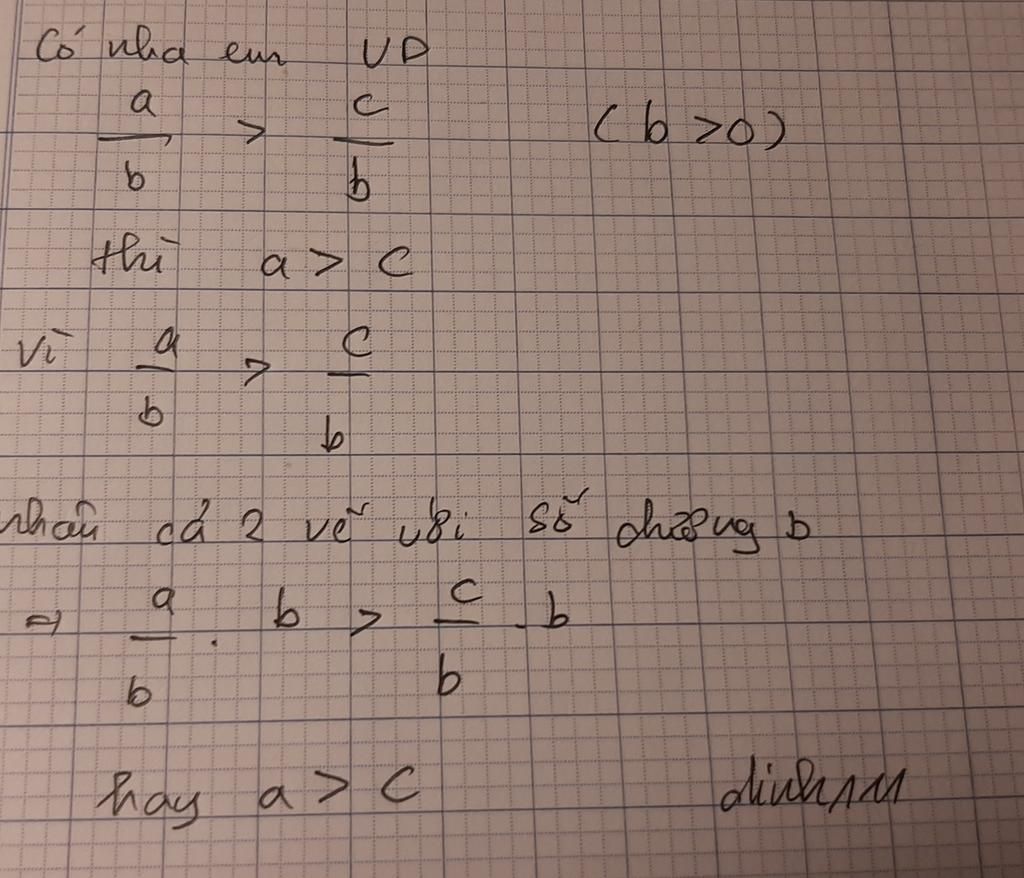 Có nha em VD
a/b > c/b (b>0)
thì a > c
Vì a/b > c/b
nhân cả 2 vế với số dương b
⇒ a/b . b > c/b . b
hay a > c dinh1111